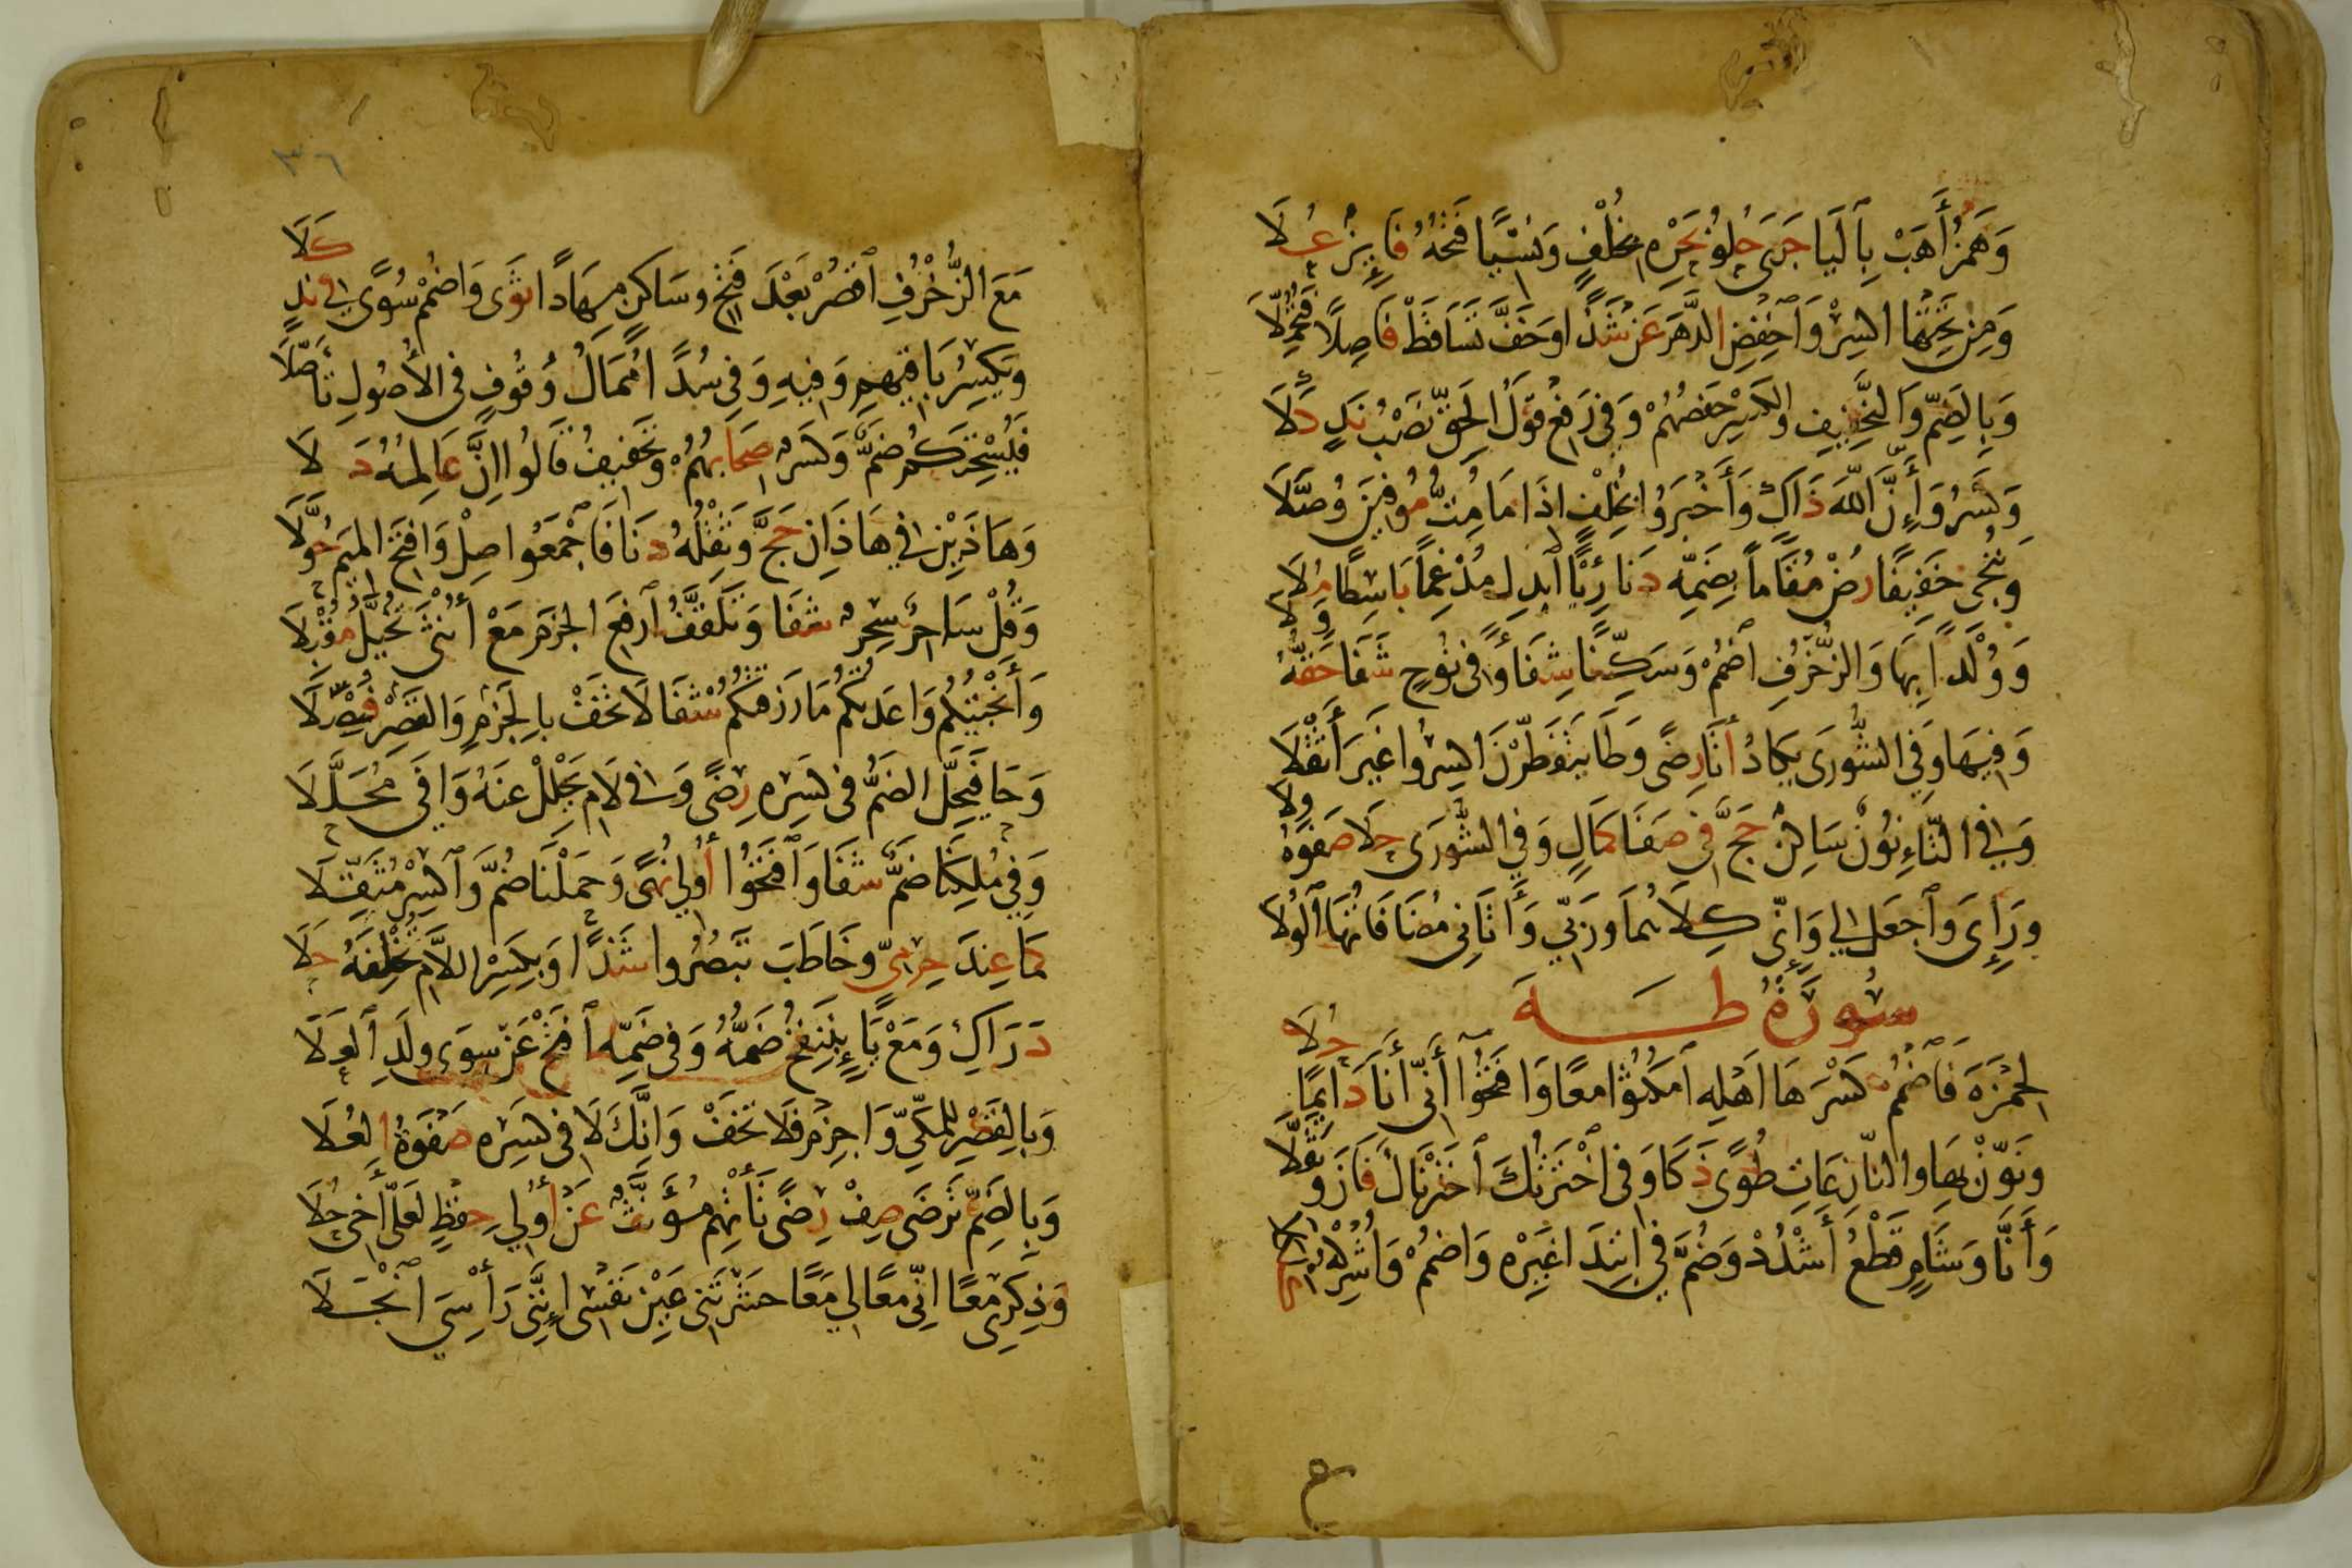 وَهَمْزُ أَهَبْ بِالْيَا جَرَى حُلْوُ بَحْرِهِ بِخُلْفٍ وَنَسْيًا فَتْحُهُ فَائِزٌ عُلَا
وَمِنْ تَحْتِهَا اكْسِرْ وَاخْفِضِ الدَّهْرَ عَنْ شَذًا وَخَفَّ تَسَاقَطْ فَاصِلًا فَتُحُمِّلَا
وَبِالضَّمِّ وَالتَّخْفِيفِ وَالْكَسْرِ حَفْصُهُمْ وَفِي رَفْعِ قَوْلُ الْحَقِّ نَصْبُ نَدٍ كَلَا
وَكَسْرُ وَأَنَّ اللهَ ذَاكٍ وَأَخْبَرُوا بِخُلْفٍ اذَا مَا مُتُّ مُوفِينَ وُصَّلَا
وَنُنْجِي خَفِيفًا رُضْ مُقَامًا بِضَمِّهِ دَنَا رِئْيًا ابْدِلْ مُدْغِمًا بَاسِطًا مُلَا
وَلَا
وَوُلْدًا بِهَا وَالزُّخْرُفِ اضْمُمْ وَسَكِّنًا شِفَاءً وَفِي نُوحٍ شَفَا حَقُّهُ
وَفِيهَا وَفِي الشُّورَى يَكَادُ أَتَى رِضًى وَطَا يَتَفَطَّرْنَ اكْسِرُوا غَيْرَ أَثْقَلَا
وِلَا
وَفِي التَّاءِ نُونٌ سَاكِنٌ حَجَّ فِي صَفَا كَمَالٍ وَفِي الشُّورَى حَلَا صَفْوُهُ
وَرَاءِيَ وَاجْعَلْ لِي وَإِنِّي كِلَاهُمَا وَرَبِّي وَآتَانِي مُضَافَاتُهَا الْوُلَا
سُورَةُ طَهَ
حُلَا
لِحَمْزَةَ فَاضْمُمْ كَسْرَ هَا اهْلِهِ امْكُثُوا مَعًا وَافْتَحُوا أَنِّي أَنَا دَائِمًا
وَنَوِّنْ بِهَا وَالنَّازِعَاتِ طُوًى ذَكَا وَفِي اخْتَرْتُكَ اخْتَرْنَاكَ فَازَ وَثَقَّلَا
وَأَنَّا وَشَامٍ قَطْعُ أَشْدُدْ وَضُمَّ فِي ابْتِدَا غَيْرِهِ وَاضْمُمْ وَأَشْرِكْهُ
٣٦
كَلَا
مَعَ الزُّخْرُفِ اقْصُرْ بَعْدَ فَتْحٍ وَسَاكِنٍ مِهَادًا ثَوَى وَاضْمُمْ سُوًى فِي نَدٍ
وَيَكْسِرُ بَاقِيهِمْ وَفِيهِ وَفِي سُدًى مُمَالُ وُقُوفٍ فِي الْأُصُولِ تَأَصَّلَا
فَيُسْحِتَكُمْ ضَمٌّ وَكَسْرٌ صِحَابُهُمْ وَتَخْفِيفُ قَالُوا انَّ عَالِمُهُ دَلَا
وَهَاذَيْنِ فِي هَاذَانِ حَجَّ وَثِقْلُهُ دَنَا فَاجْمَعُوا صِلْ وَافْتَحِ الْمِيمَ حُوَّلَا
وَقُلْ سَاحِرٌ سِحْرٌ شَفَا وَتَلَقَّفُ ارْفَعِ الْجَزْمَ مَعْ أُنْثَى تُخَيَّلُ مُقْبِلَا
وَأَنْجَيْتُكُمْ وَاعَدْتُكُمْ مَا رَزَقْتُكُمْ شَفَا لَا تَخَفْ بِالْجَزْمِ وَالْقَصْرِ فُصِّلَا
وَحَا فَيَحِلَّ الضَّمُّ فِي كَسْرِهِ رِضًى وَفِي لَامِ يَحْلِلْ عَنْهُ وَافَى مُحَلَّلَا
وَفِي مُلْكِنَا ضَمٌّ شَفَا وَافْتَحُوا أُولِي نُهًى وَحَمَلْنَا ضُمَّ وَاكْسِرْ مُثَقِّلَا
كَمَا عِنْدَ حِرْمِيٍّ وَخَاطَبَ تَبْصُرُوا شَذًا وَبِكَسْرِ اللَّامِ تُخْلِفَهُ حَلَا
دَرَاكِ وَمَعْ يَاءٍ بِنَنْفُخُ ضَمُّهُ وَفِي ضَمِّهِ افْتَحْ عَنْ سِوَى وَلَدِ الْعَلَا
وَبِالْقَصْرِ لِلْمَكِّيِّ وَاجْزِمْ فَلَا تَخَفْ وَانَّكَ لَا فِي كَسْرِهِ صَفْوَةُ الْعُلَا
وَبِالضَّمِّ تَرْضَى صِفْ رِضًى تَأْتِهِمْ مُؤَنَّثٌ عَنْ أُولِي حِفْظٍ لَعَلِّي أَخِي حُلَا
وَذِكْرِي مَعًا انِّي مَعًا لِي مَعًا حَشَرْتَنِي عَيْنِ نَفْسِي إِنَّنِي رَأْسِيَ انْجَلَا